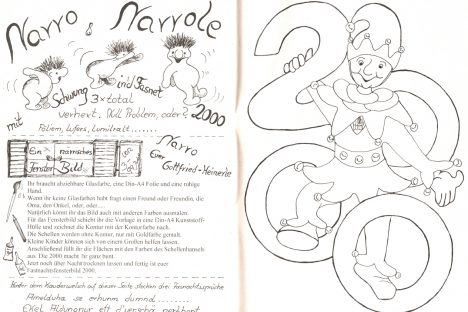 Narro & Narrole
mit Schwung ind Fasnet
3x total
verhext. Null Problem, oder?
2000
Foliem, Lufers, Lumitralt.......
Ein närrisches
Fenster Bild
Narro
Euer Gottfried-Heinerle
Ihr braucht abziehbare Glasfarbe, eine Din-A4 Folie und eine ruhige
Hand.
Wenn ihr keine Glasfarben habt fragt einen Freund oder Freundin, die
Oma, den Onkel, oder, oder...
Natürlich könnt ihr das Bild auch mit anderen Farben ausmalen.
Für das Fensterbild schiebt ihr die Vorlage in eine Din-A4 Kunststoff-
Hülle und zeichnet die Kontur mit der Konturfarbe nach.
Die Schellen werden ohne Kontur, nur mit Goldfarbe gemalt.
Kleine Kinder können sich von einem Großen helfen lassen.
Anschließend füllt ihr die Flächen mit den Farben des Schellenhansels
aus. Die 2000 macht ihr ganz bunt.
Jetzt noch über Nacht trocknen lassen und fertig ist euer
Fastnachtsfensterbild 2000.
Hinter dem Kauderwelsch auf dieser Seite stecken drei Fasnachtssprüche
Amelduha se erhunm dumnd
2000